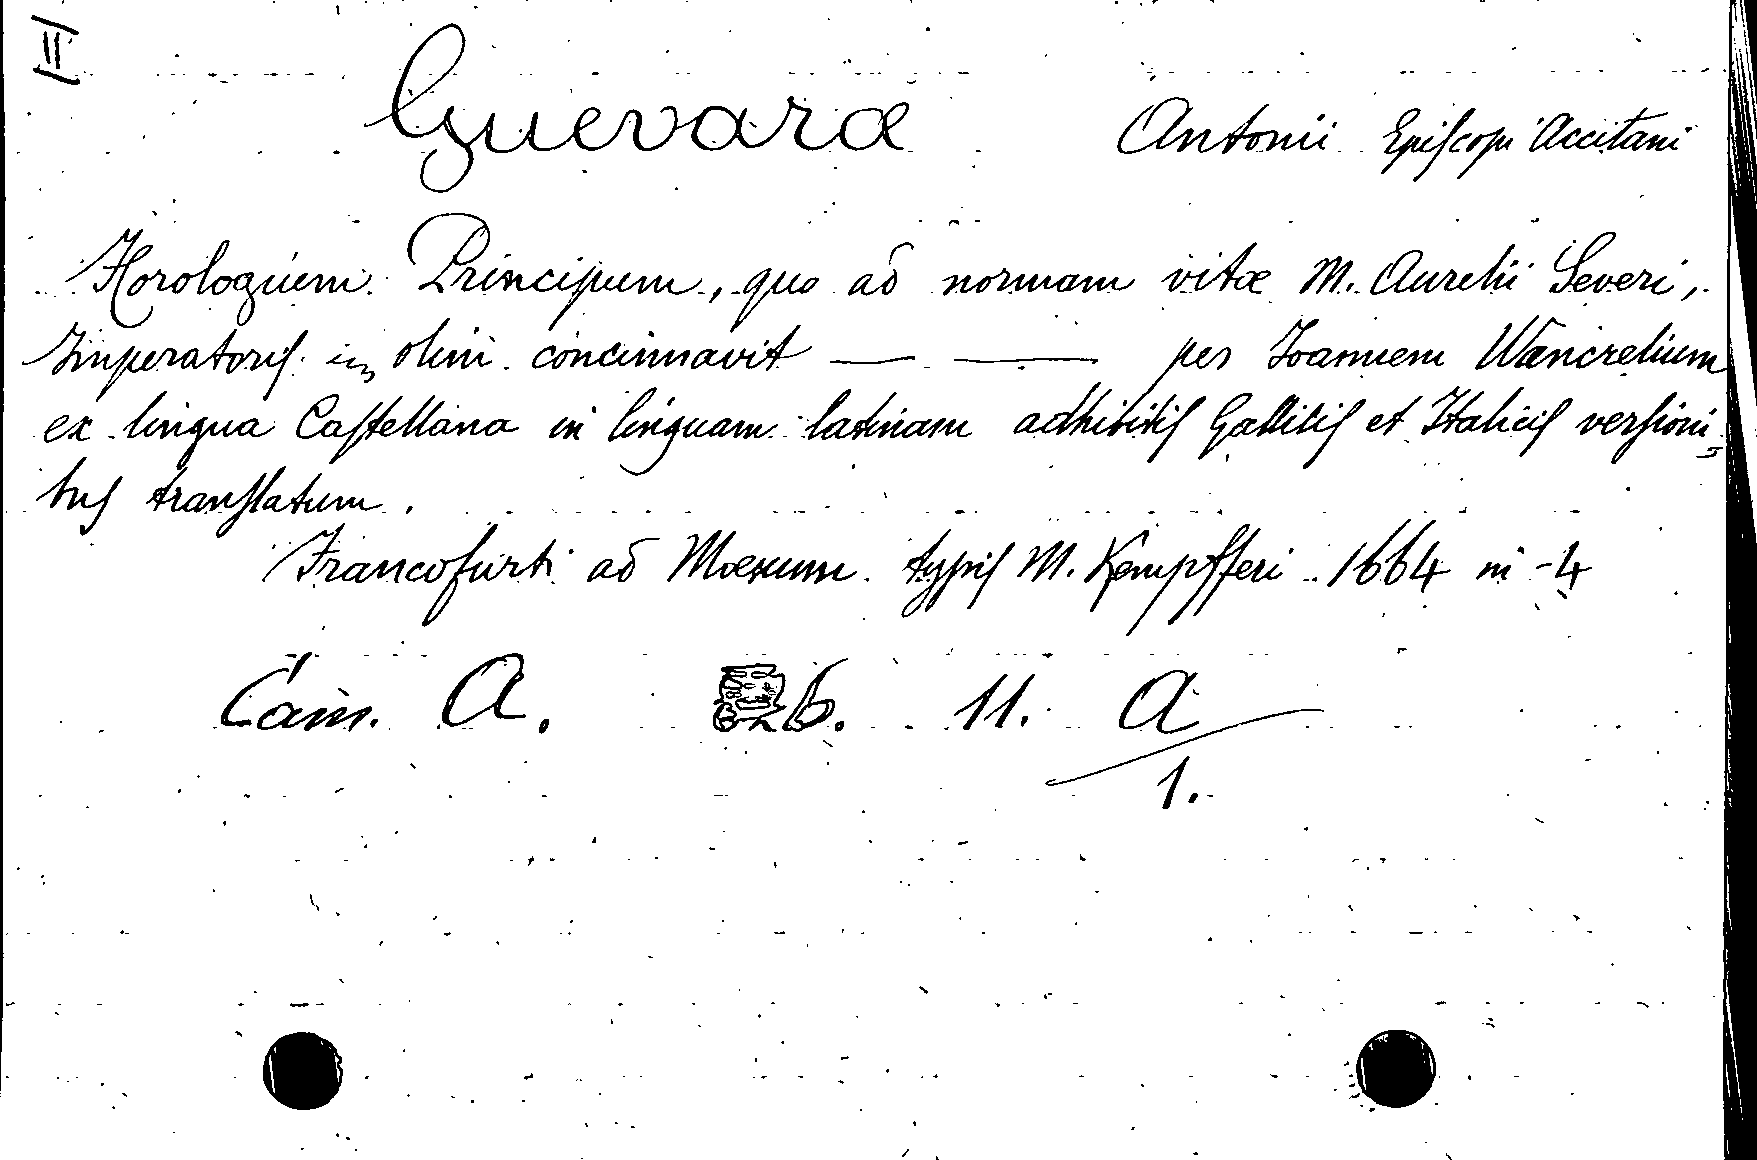 II
Guevaræ Antonii Episcopi Accitani
Horologium Principum, quo ad normam vitæ M. Aurelii Severi,
Imperatoris olim concinnavit — — per Joannem Wanckelium
ex lingua Castellana in linguam latinam adhibitis Gallicis et Italicis versioni-
bus translatum.
Francofurti ad Mœnum typis M. Kempfferi 1664 in -4
Cam. A. b. 11. a
1.